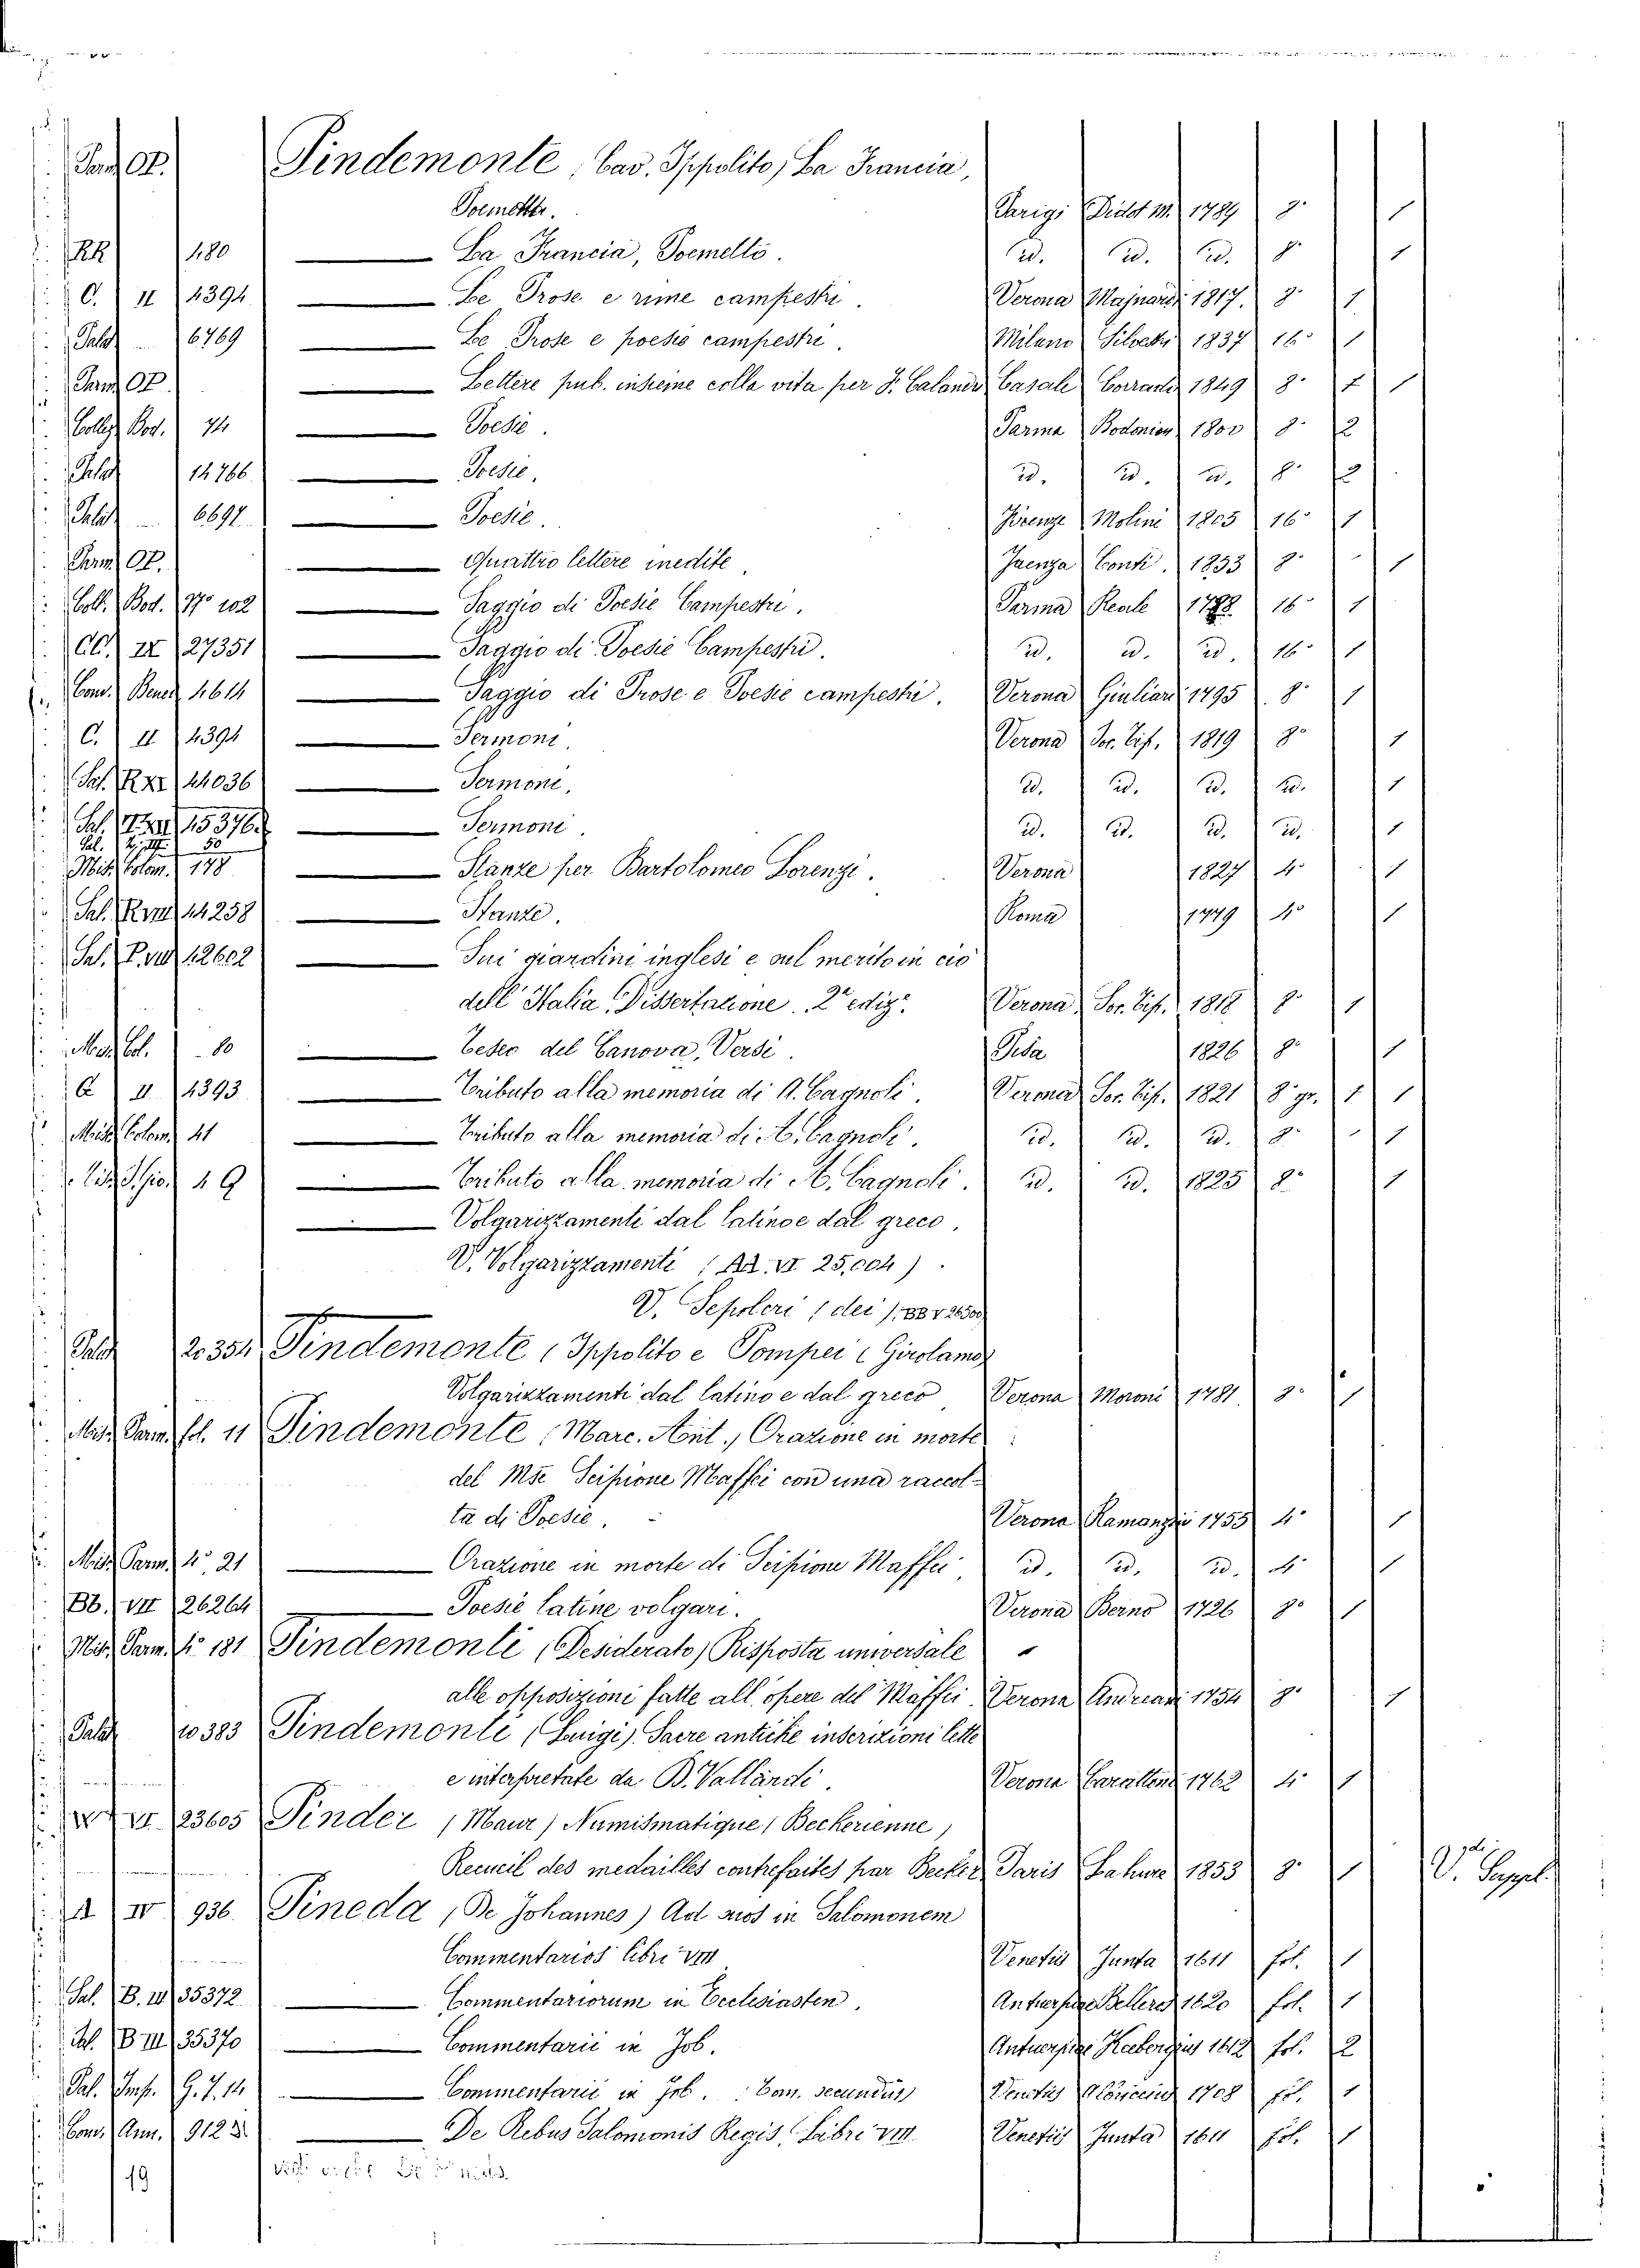 Parm OP. Pindemonte, Cav. Ippolito, La Francia,
Poemetto. Parigi Didot m. 1789 8° 1
RR 180 La Francia, Poemetto. id. id. id. 8° 1
C. II 4394 Le Prose e rime campestri. Verona Majnardi 1817. 8° 1
Palat 6769 Le Prose e poesie campestri. Milano Silvestri 1837 16° 1
Parm OP. Lettere pub. insieme colla vita per F. Calandri Casale Corrado 1849 8° 1 1
Colleg Bod. 74 Poesie. Parma Bodonian 1800 8° 2
Palat 14766 Poesie. id. id. id. 8° 2
Palat 6697 Poesie. Firenze Molini 1805 16° 1
Parm OP. Quattro lettere inedite. Faenza Conti. 1853 8° 1
Coll. Bod. N° 102 Saggio di Poesie Campestri. Parma Reale 1788 16° 1
CC. II 27351 Saggio di Poesie Campestri. id. id. id. 16° 1
Conv. Bened 4614 Saggio di Prose e Poesie campestri. Verona Giuliari 1795 8° 1
C. II 4394 Sermoni. Verona Soc. Tip. 1819 8° 1
Sal. R XI 44036 Sermoni. id. id. id. id. 1
Sal. 15376 Sermoni. id. id. id. id. 1
50
Misc. Colom. 178 Stanze per Bartolomeo Lorenzi. Verona 1827 4° 1
Sal. 44258 Stanze. Roma 1779 4° 1
Sal. P. VIII 42602 Sui giardini inglesi e sul merito in ciò
dell'Italia, Dissertazione. 2ª ediz.e Verona Soc. Tip. 1818 8° 1
Misc. Col. 80 Teseo del Canova, Versi. Pisa 1826 8° 1
C II 4393 Tributo alla memoria di A. Cagnoli. Verona Soc. Tip. 1821 8° gr. 1 1
Misc. Colom. 41 Tributo alla memoria di A. Cagnoli. id. id. id. 8° 1
49 Tributo alla memoria di A. Cagnoli. id. id. 1825 8° 1
Volgarizzamenti dal latino e dal greco.
V. Volgarizzamenti (AA. VI 25,004).
V. Sepolcri (dei) (BB V 26500)
Palat 20354 Pindemonte (Ippolito e Pompei (Girolamo)
Volgarizzamenti dal latino e dal greco Verona Moroni 1781. 8° 1
Misc. Parm. fol. 11 Pindemonte, Marc. Ant., Orazione in morte
del Mse Scipione Maffei con una raccol-
ta di Poesie. Verona Ramanzini 1755 4° 1
Misc. Parm. 4° 21 Orazione in morte di Scipione Maffei. id. id. id. 4° 1
Bb. VII 26264 Poesie latine volgari. Verona Berno 1726 8° 1
Mis. Parm. 181 Pindemonti, (Desiderato) Risposta universale
alle opposizioni fatte all'opere del Maffei. Verona Andreani 1754 8° 1
Palat 10383 Pindemonti (Luigi) Sacre antiche inscrizioni lette
e interpretate da B. Vallardi. Verona Carattoni 1762 4° 1
VI 23605 Pinder (Maur) Numismatique (Beckerienne)
Recueil des medailles contrefaites par Becker Paris Lahure 1853 8° 1 V. Suppl.
A IV 936. Pineda, (De Johannes) Ad suos in Salomonem
Commentarios libri VIII Venetiis Junta 1611 fol. 1
Sal. B. III 35372 Commentariorum in Ecclesiasten. Antuerpiae Bellere 1620 fol. 1
Sal. B III 35370 Commentarii in Job. Antuerpiae Keebergius 1612 fol. 2
Pal. Imp. G. 7. 14 Commentarii in Job. Venetiis 1708 fol. 1
Conv. Ann. 9123. De Rebus Salomonis Regis, Libri VIII Venetiis Junta 1611 fol. 1
19